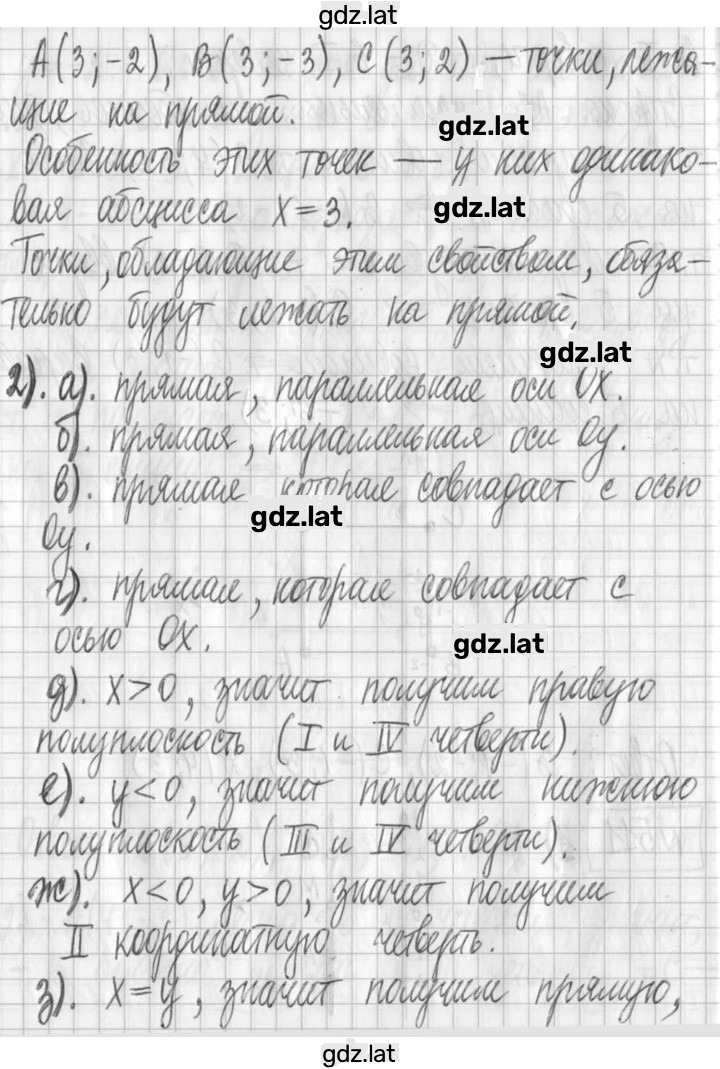 gdz.lat
A(3;-2), B(3;-3), C(3;2) — точки, лежа-
щие на прямой.
gdz.lat
Особенность этих точек — у них одинако-
вая абсцисса x=3.
gdz.lat
Точки, обладающие этим свойством, обяза-
тельно будут лежать на прямой.
gdz.lat
2). а). прямая, параллельная оси Ox.
б). прямая, параллельная оси Oy.
в). прямая которая совпадает с осью
gdz.lat
Oy.
г). прямая, которая совпадает с
осью Ox.
gdz.lat
д). x>0, значит получим правую
полуплоскость (I и IV четверти).
е). y<0, значит получим нижнюю
полуплоскость (III и IV четверти).
ж). x<0, y>0, значит получим
II координатную четверть.
з). x=y, значит получим прямую,
gdz.lat